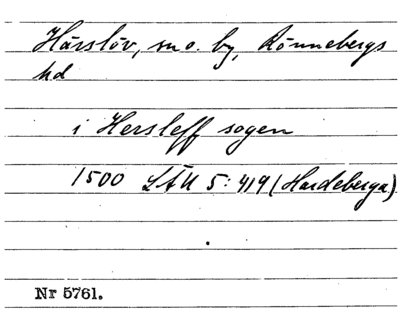 Härslöv, sn o. by, Rönnebergs
hd
i Hersleff sogen
1500 LÄU 5:419 (Hardeberga)
Nr 5761.